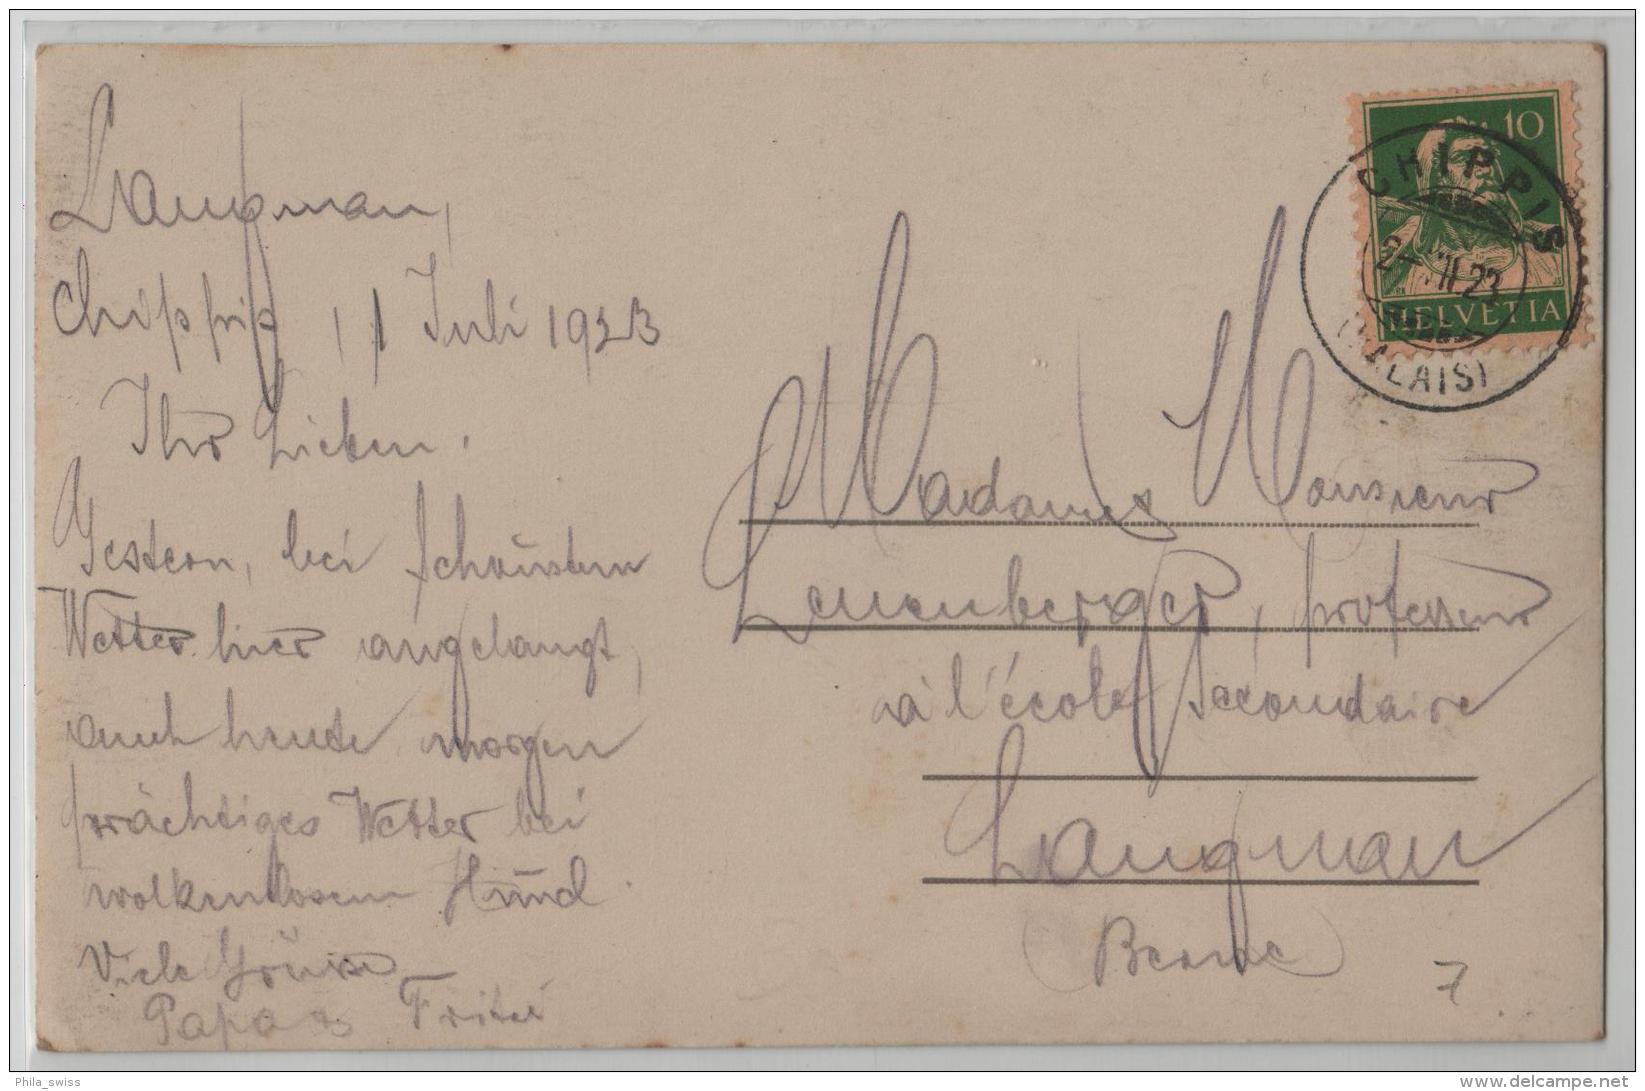 Langnau,
Chippis, 1 Juli 1923
Ihr Lieben.
Gestern, bei schönstem
Wetter hier angelangt,
auch heute morgen
prächtiges Wetter bei
wolkenlosem
Viele Grüsse
Papa & Fritzi
10
CHIPPIS
2 VII.23
HELVETIA
(VALAIS)
Madame & Monsieur
Leuenberger, professeur
à l'école secondaire
Langnau
Berne
7
Phila_swiss
delcampe.net